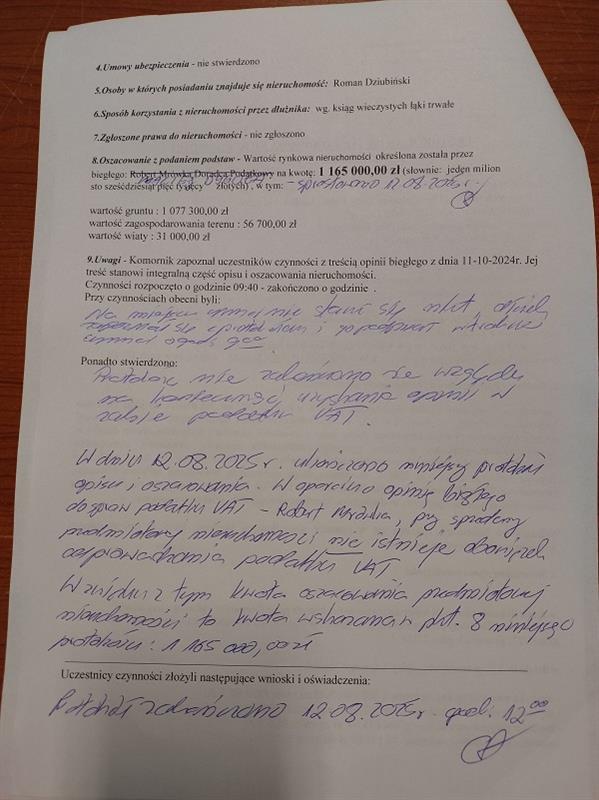 4.Umowy ubezpieczenia - nie stwierdzono
5.Osoby w których posiadaniu znajduje się nieruchomość: Roman Dziubiński
6.Sposób korzystania z nieruchomości przez dłużnika: wg. ksiąg wieczystych łąki trwałe
7.Zgłoszone prawa do nieruchomości - nie zgłoszono
8.Oszacowanie z podaniem podstaw - Wartość rynkowa nieruchomości określona została przez
biegłego: Robert Mrówka Doradca Podatkowy na kwotę: 1 165 000,00 zł (słownie: jeden milion
sto sześćdziesiąt pięć tysięcy złotych) , w tym: - sprostowano 12.08.2025 r.
wartość gruntu : 1 077 300,00 zł
wartość zagospodarowania terenu : 56 700,00 zł
wartość wiaty : 31 000,00 zł
9.Uwagi - Komornik zapoznał uczestników czynności z treścią opinii biegłego z dnia 11-10-2024r. Jej
treść stanowi integralną część opisu i oszacowania nieruchomości.
Czynności rozpoczęto o godzinie 09:40 - zakończono o godzinie .
Przy czynnościach obecni byli:
Na miejsce nie stawił się nikt,
się z protokołem i go podpisał
godz. 9⁰⁰
Ponadto stwierdzono:
Protokołu nie zakończono ze względu
na konieczność uzyskania opinii w
zakresie podatku VAT.
W dniu 12.08.2025 r. ukończono niniejszy protokół
opisu i oszacowania. W oparciu o opinię biegłego
do spraw podatku VAT - Robert Mrówka, przy sprzedaży
przedmiotowej nieruchomości nie istnieje obowiązek
odprowadzania podatku VAT
W związku z tym kwota oszacowania przedmiotowej
nieruchomości to kwota wskazana w pkt. 8 niniejszego
protokołu: 1 165 000,00 zł
Uczestnicy czynności złożyli następujące wnioski i oświadczenia:
Protokół zakończono 12.08.2025 r. godz. 12⁰⁰